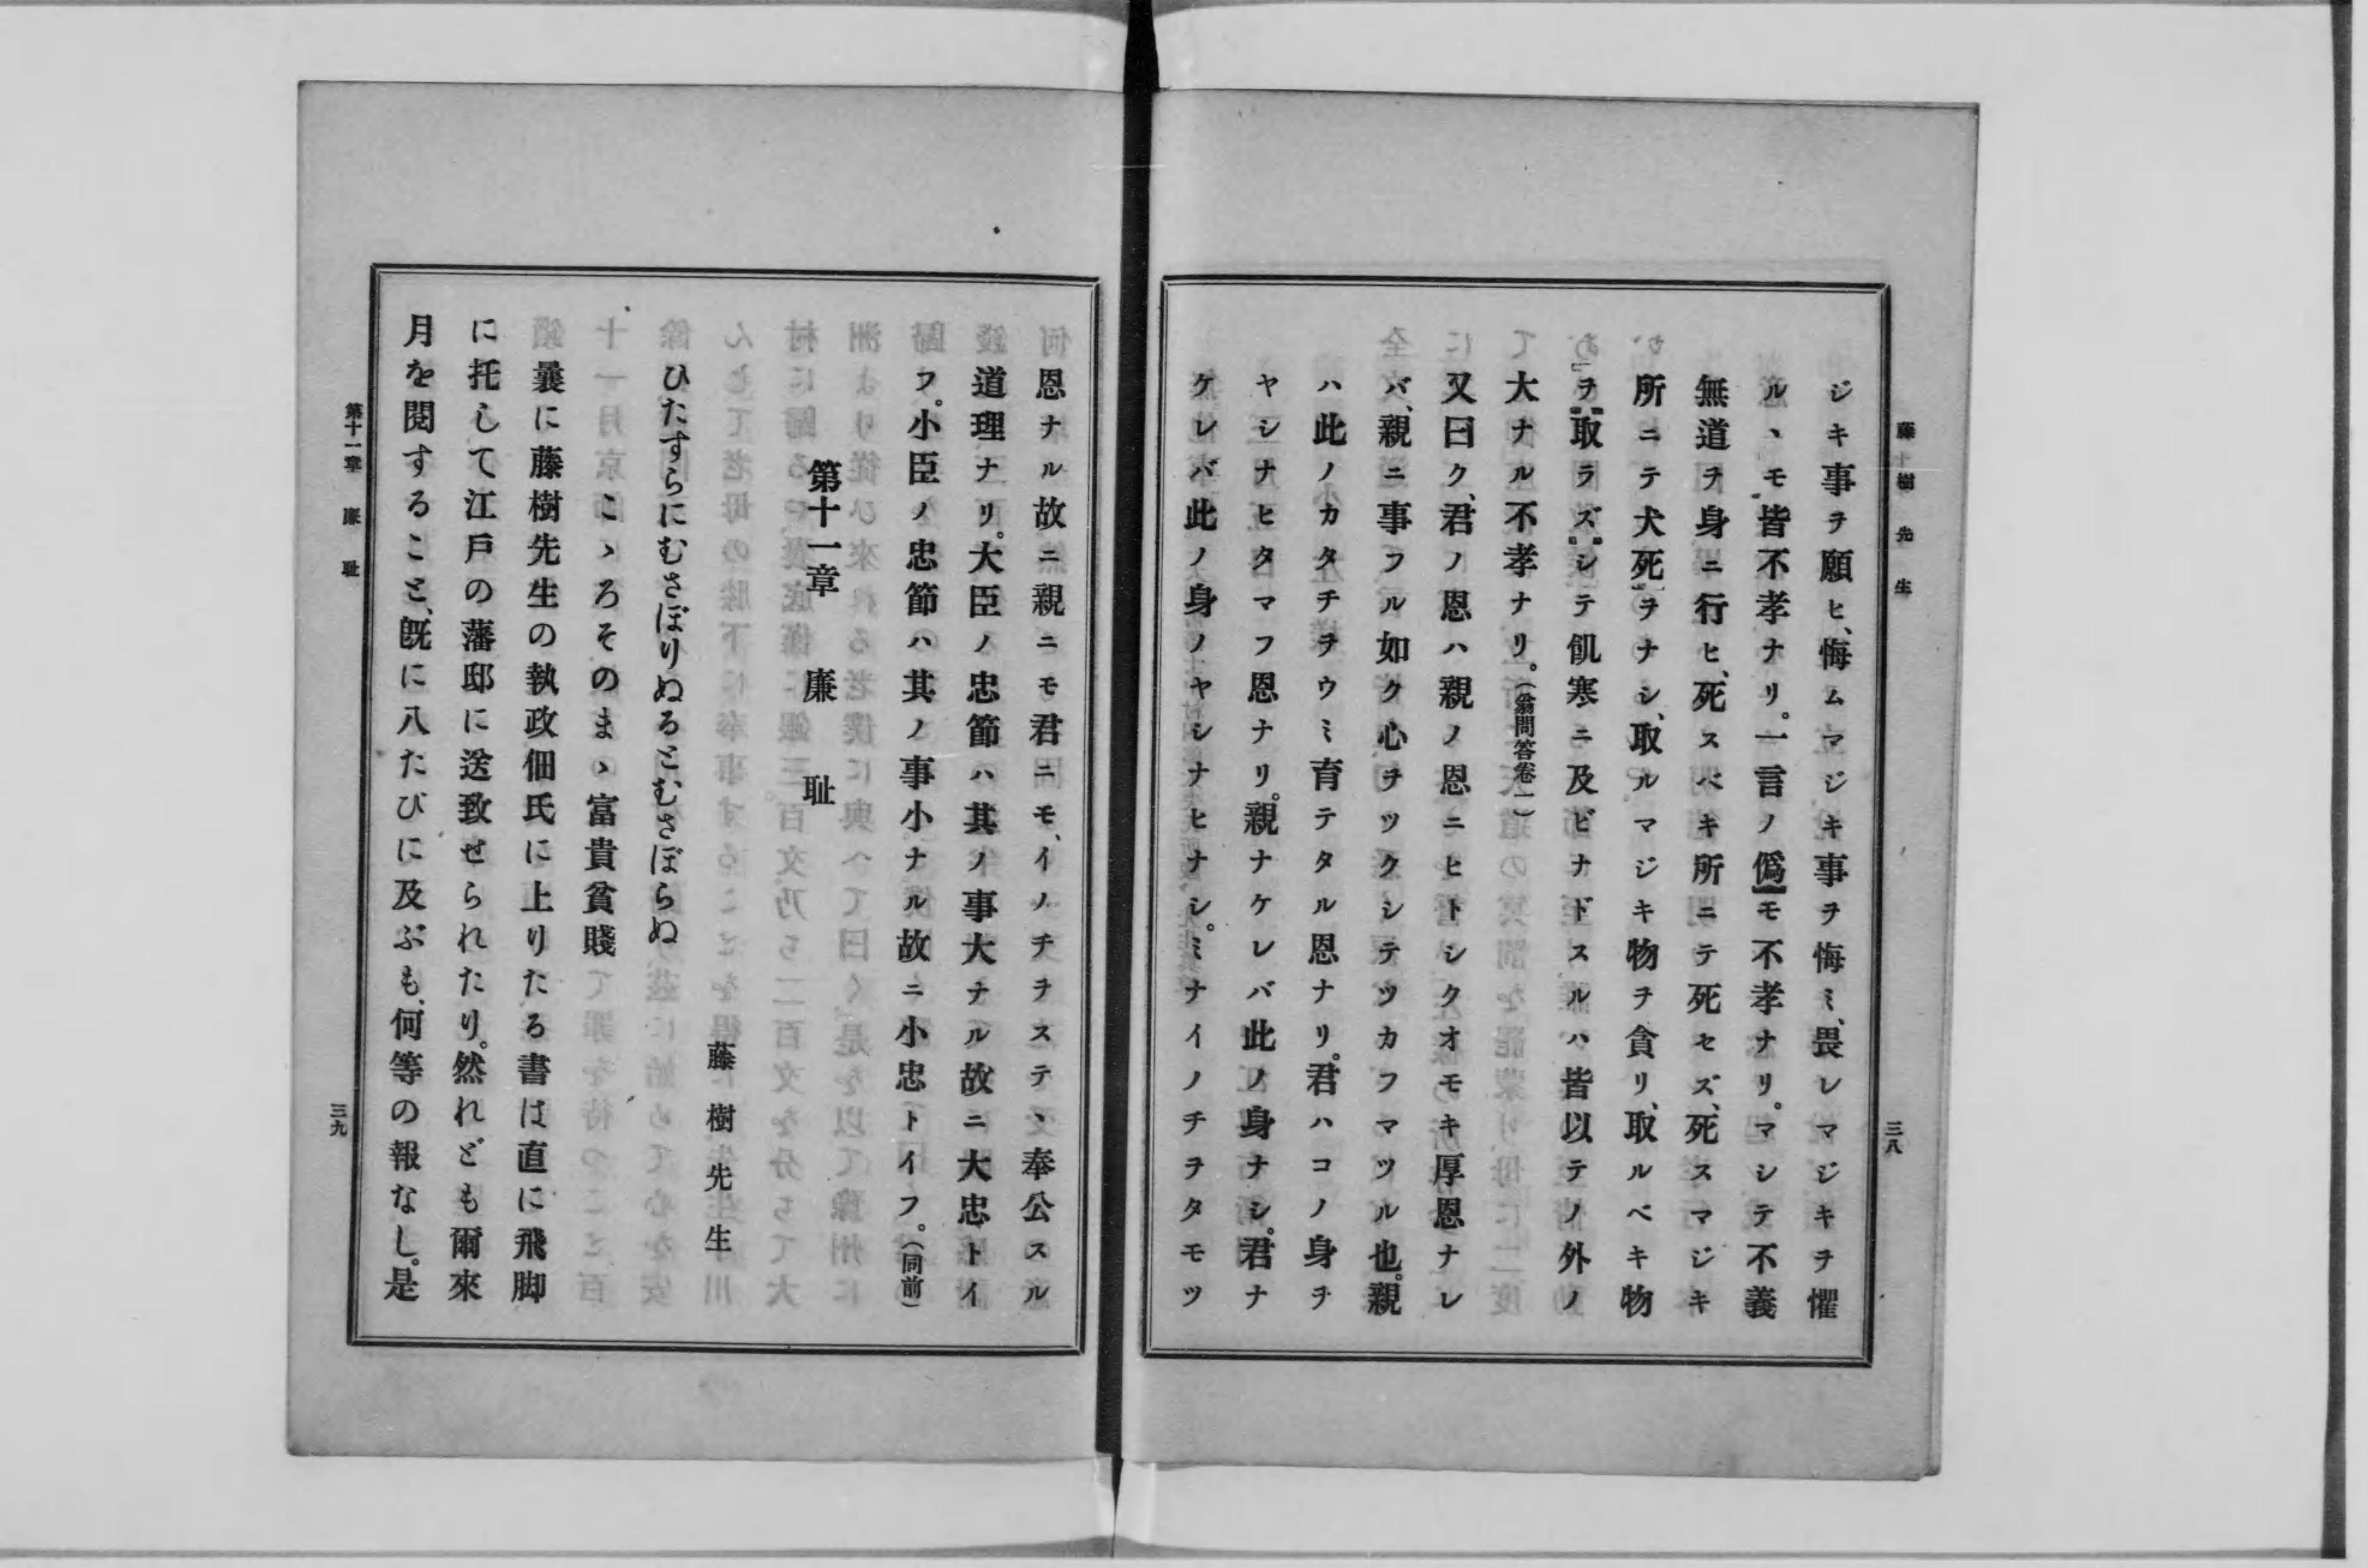 藤樹先生
三八
ジキ事ヲ願ヒ、悔ムマジキ事ヲ悔ミ、畏レマジキヲ懼
ルヽモ皆不孝ナリ。一言ノ僞モ不孝ナリ。マシテ不義
無道ヲ身ニ行ヒ、死スベキ所ニテ死セズ、死スマジキ
所ニテ犬死ヲナシ、取ルマジキ物ヲ貪リ、取ルベキ物
ヲ取ラズシテ飢寒ニ及ビナドスルハ皆以テノ外ノ
大ナル不孝ナリ。(翁問答卷一)
又曰ク、君ノ恩ハ親ノ恩ニヒトシクオモキ厚恩ナレ
バ、親ニ事フル如ク心ヲツクシテツカフマツル也。親
ハ此ノカタチヲウミ育テタル恩ナリ。君ハコノ身ヲ
ヤシナヒタマフ恩ナリ。親ナケレバ此ノ身ナシ。君ナ
ケレバ此ノ身ノヤシナヒナシ。ミナイノチヲタモツ
恩ナル故ニ親ニモ君ニモ、イノチヲステヽ奉公スル
道理ナリ。大臣ノ忠節ハ其ノ事大ナル故ニ大忠トイ
フ。小臣ノ忠節ハ其ノ事小ナル故ニ小忠トイフ。(同前)
第十一章 廉耻
藤樹先生
ひたすらにむさぼりぬるとむさぼらぬ
こゝろそのまゝ富貴貧賤
曩に藤樹先生の執政佃氏に上りたる書は直に飛脚
に托して江戸の藩邸に送致せられたり。然れども爾來
月を閲すること、既に八たびに及ぶも、何等の報なし。是
第十一章 廉耻
三九